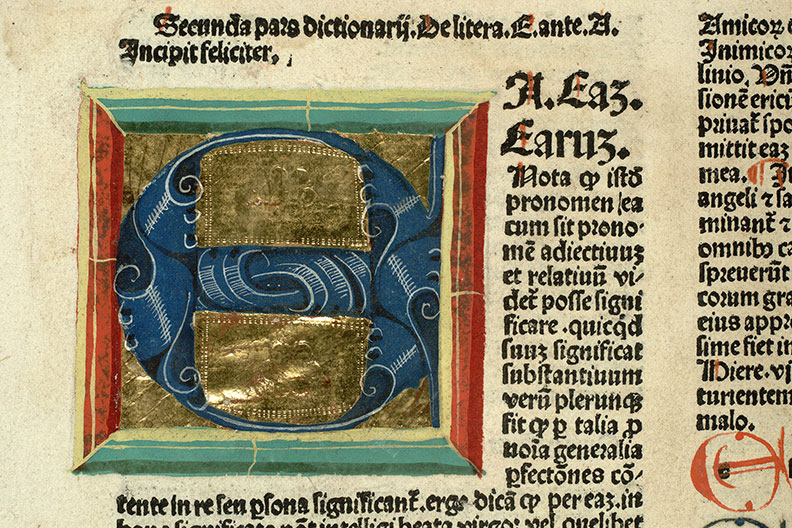 Secunda pars dictionarij. De litera. E. ante. A.
Incipit feliciter,
EA. Eaz.
Earuz.
Nota ꝙ istd̄
pronomen/ea
cum sit prono-
mē adiectiuuz
et relatiuū vi-
det᷑ posse signi
ficare. quicqͥd
suuz significat
substantiuum
verū plerunqꝫ
fit ꝙ ꝑ talia ꝓ
noīa generalia
ꝑfectōnes cō-
tente in re seu ꝑsona significant᷑. ergo dicā ꝙ per eaz. in
intelligi beata virgo: vel quelibet
Amicoꝝ
Inimicoꝝ
linio. Vn̄
sionē ericu
priuat᷑ spo
mittit eaz
mea.
angeli ⁊ sa
minant᷑ ⁊
omnibꝰ ca
spreuerūt
corum gra
eius appro
sime fiet in
Miere. vi
turientem
malo.